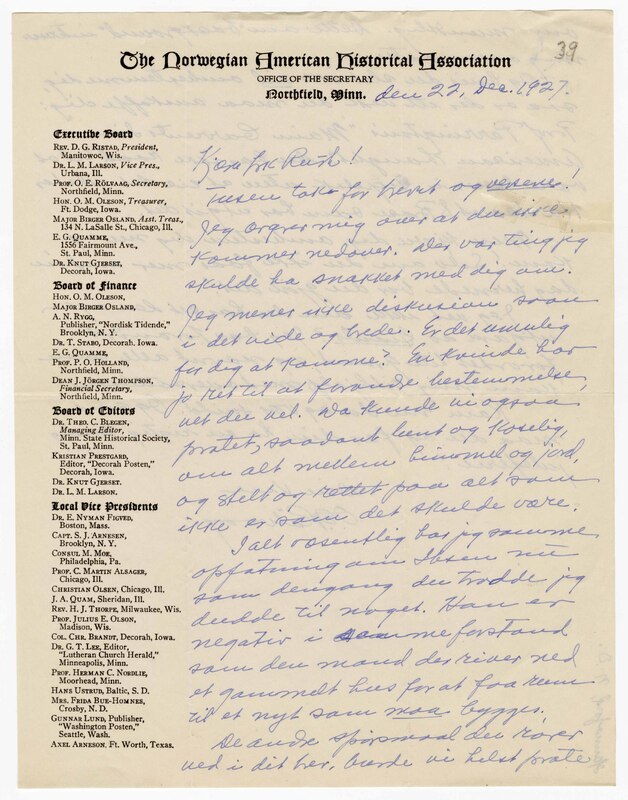 39
The Norwegian American Historical Association
OFFICE OF THE SECRETARY
Northfield, Minn. den 22, Dec. 1927.
Executive Board
REV. D. G. RISTAD, President,
Manitowoc, Wis.
DR. L. M. LARSON, Vice Pres.,
Urbana, Ill.
PROF. O. E. RÖLVAAG, Secretary,
Northfield, Minn.
HON. O. M. OLESON, Treasurer,
Ft. Dodge, Iowa.
MAJOR BIRGER OSLAND, Asst. Treas.,
134 N. LaSalle St., Chicago, Ill.
E. G. QUAMME,
1556 Fairmount Ave.,
St. Paul, Minn.
DR. KNUT GJERSET,
Decorah, Iowa.
Board of Finance
HON. O. M. OLESON,
MAJOR BIRGER OSLAND,
A. N. RYGG,
Publisher, "Nordisk Tidende,"
Brooklyn, N. Y.
DR. T. STABO, Decorah, Iowa.
E. G. QUAMME,
PROF. P. O. HOLLAND,
Northfield, Minn.
DEAN J. JÖRGEN THOMPSON,
Financial Secretary,
Northfield, Minn.
Board of Editors
DR. THEO. C. BLEGEN,
Managing Editor,
Minn. State Historical Society,
St. Paul, Minn.
KRISTIAN PRESTGARD,
Editor, "Decorah Posten,"
Decorah, Iowa.
DR. KNUT GJERSET.
DR. L. M. LARSON.
Local Vice Presidents
DR. E. NYMAN FIGVED,
Boston, Mass.
CAPT. S. J. ARNESEN,
Brooklyn, N. Y.
CONSUL M. MOE,
Philadelphia, Pa.
PROF. C. MARTIN ALSAGER,
Chicago, Ill.
CHRISTIAN OLSEN, Chicago, Ill.
J. A. QUAM, Sheridan, Ill.
REV. H. J. THORPE, Milwaukee, Wis.
PROF. JULIUS E. OLSON,
Madison, Wis.
COL. CHR. BRANDT, Decorah, Iowa.
DR. G. T. LEE, Editor,
"Lutheran Church Herald,"
Minneapolis, Minn.
PROF. HERMAN C. NORDLIE,
Moorhead, Minn.
HANS USTRUD, Baltic, S. D.
MRS. FRIDA BUE-HOMNES,
Crosby, N. D.
GUNNAR LUND, Publisher,
"Washington Posten,"
Seattle, Wash.
AXEL ARNESON, Ft. Worth, Texas.
Kjære frk Ruth!
Tusen takk for brevet og versene!
Jeg ærgrer mig over at du ikke
kommer nedover. Der var ting jeg
skulde ha snakket med dig om.
Jeg mener ikke diskusion saan
i det vide og brede. Er det umulig
for dig at komme? En kvinde har
jo ret til at forandre bestemmelse,
vet du vel. Da kunde vi ogsaa
pratet, saadant lunt og koselig,
om alt mellem himmel og jord,
og stelt og rettet paa alt som
ikke er som det skulde være.
I alt væsentlig har jeg samme
opfatning om Ibsen nu
som dengang du trodde jeg
duedde til noget. Han er
negativ i samme forstand
som den mand der river ned
et gammelt hus for at faa rum
til et nyt som maa bygges.
De andre spørsmaal du rører
ved i dit brev, burde vi helst prate